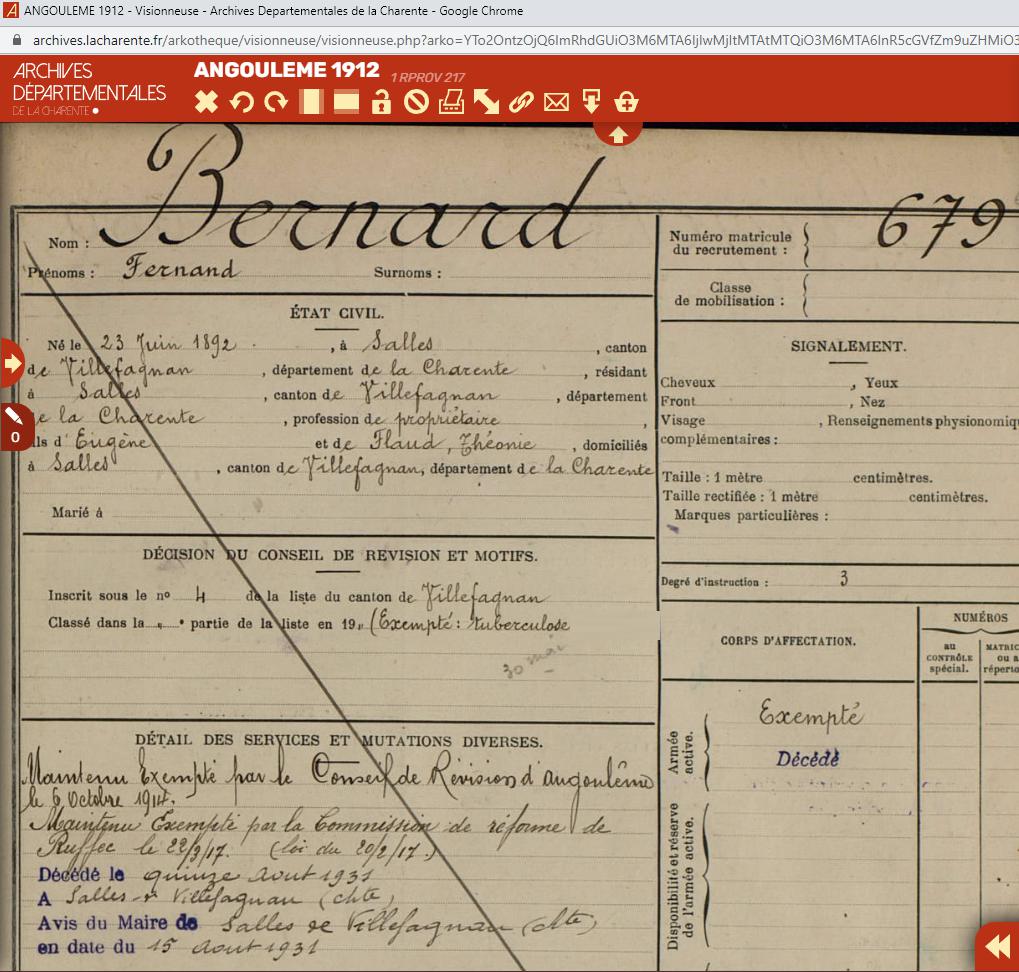 ANGOULEME 1912 - Visionneuse - Archives Departementales de la Charente - Google Chrome
archives.lacharente.fr/arkotheque/visionneuse/visionneuse.php?arko=
ARCHIVES
DÉPARTEMENTALES
DE LA CHARENTE
ANGOULEME 1912 1 RPROV 217
0
Nom : Bernard
Prénoms : Fernand Surnoms :
Numéro matricule
du recrutement : 679
Classe
de mobilisation :
ÉTAT CIVIL.
Né le 23 Juin 1892 , à Salles , canton
de Villefagnan , département de la Charente , résidant
à Salles , canton de Villefagnan , département
de la Charente , profession de propriétaire ,
ils d'Eugène et de Flaud, Théonie , domiciliés
à Salles , canton de Villefagnan, département de la Charente
Marié à
SIGNALEMENT.
Cheveux , Yeux
Front , Nez
Visage , Renseignements physionomiq
complémentaires :
Taille : 1 mètre centimètres.
Taille rectifiée : 1 mètre centimètres.
Marques particulières :
Degré d'instruction : 3
DÉCISION DU CONSEIL DE REVISION ET MOTIFS.
Inscrit sous le no 4 de la liste du canton de Villefagnan
Classé dans la „ e partie de la liste en 19„ (Exempté : tuberculose
30 mai
CORPS D'AFFECTATION.
NUMÉROS
au
CONTRÔLE
spécial.
MATRIC
ou a
réperto
Armée
active.
Exempté
Décédé
Disponibilité et réserve
de l'armée active.
DÉTAIL DES SERVICES ET MUTATIONS DIVERSES.
Maintenu Exempté par le Conseil de Révision d'angoulême
le 6 Octobre 1914.
Maintenu Exempté par la Commission de réforme de
Ruffec le 22/3/17. (loi du 20/2/17.)
Décédé le quinze Aout 1931
A Salles de Villefagnan (chte)
Avis du Maire de Salles de Villefagnan (chte)
en date du 15 Aout 1931